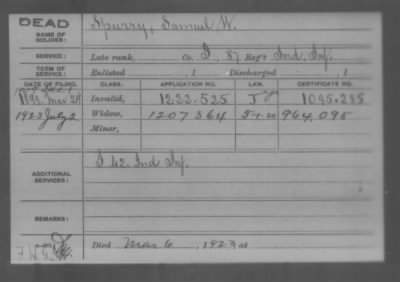 DEAD
NAME OF SOLDIER: Spurry, Samuel W.
SERVICE: Late rank, Co. I, 87 Reg't Ind. Inf.
TERM OF SERVICE: Enlisted , 1 Discharged , 1
DATE OF FILING. CLASS. APPLICATION NO. LAW. CERTIFICATE NO.
1899. Mar 21 Invalid, 1222.525 1095.285
1923 July 2 Widow, 1207 364 5-1-20 964,095
Minor,
ADDITIONAL SERVICES: I 42. Ind Inf.
REMARKS:
Died Mar 6, 1923 at